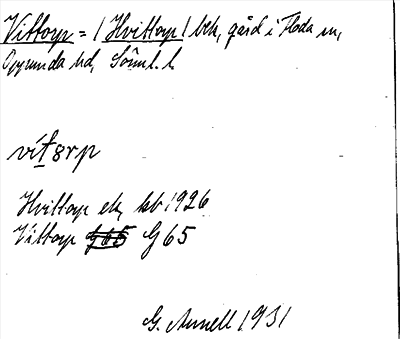 Vittorp = (Hvittorp) bek, gård i Floda sn,
Oppunda hd, Söml. l.
vítorp
Hvittorp ek, kb 1926
Vittorp G65
G. Arnell 1931